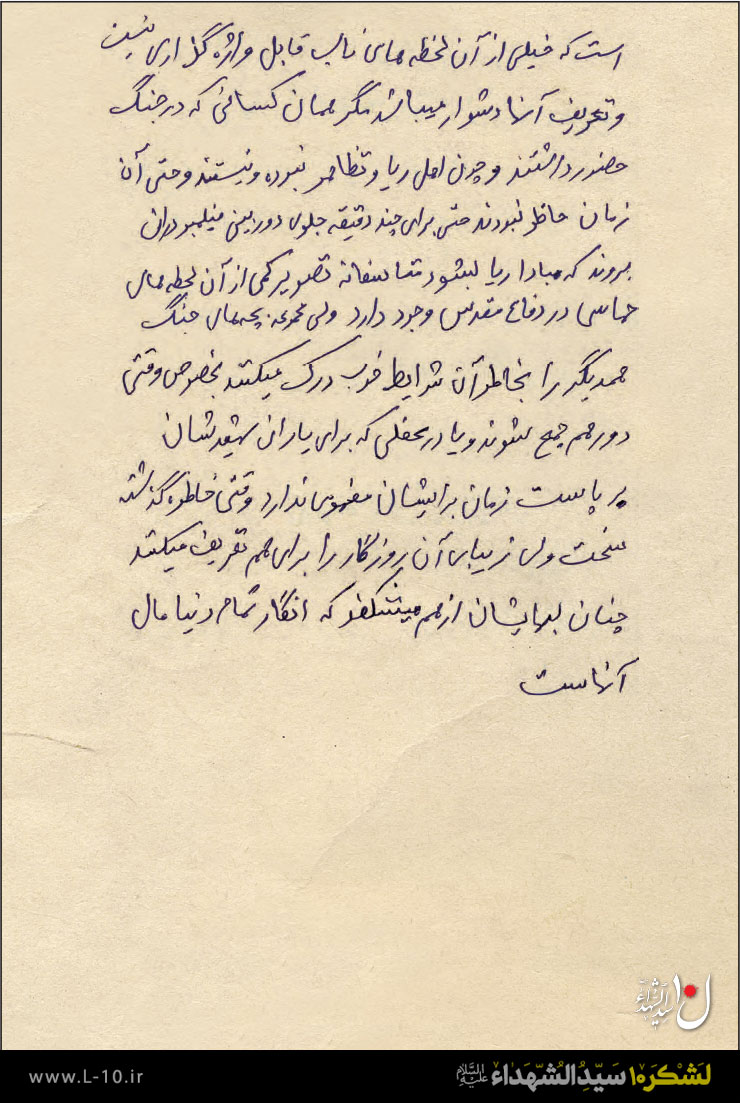 است که خیلی از آن لحظه های ناب قابل واژه گذاری نیست
و تعریف آنها دشوار میباشد مگر همان کسانی که در جنگ
حضور داشتند و چون اهل ریا و تظاهر نبوده و نیستند و حتی آن
زمان حاظر نبودند حتی برای چند دقیقه جلوی دوربین فیلمبرداری
بروند که مبادا ریا بشود متاسفانه تصویر کمی از آن لحظه های
حماسی در دفاع مقدس وجود دارد ولی مجموعه بچه های جنگ
همدیگر را بخاطر آن شرایط خوب درک میکنند بخصوص وقتی
دور هم جمع بشوند و یا در محفلی که برای یاران شهیدشان
بر پاست زمان برایشان مفهومی ندارد وقتی خاطره گذشته
سخت ولی زیبای آن روزگار را برای هم تعریف میکنند
چنان لبهایشان از هم میشکفد که انگار تمام دنیا مال
آنهاست
ل۱۰ سیدالشهداء
www.L-10.ir
لَشْکَرِ۱۰ سَیِّدُالشُّهَداء عَلَیْهِ السَّلام